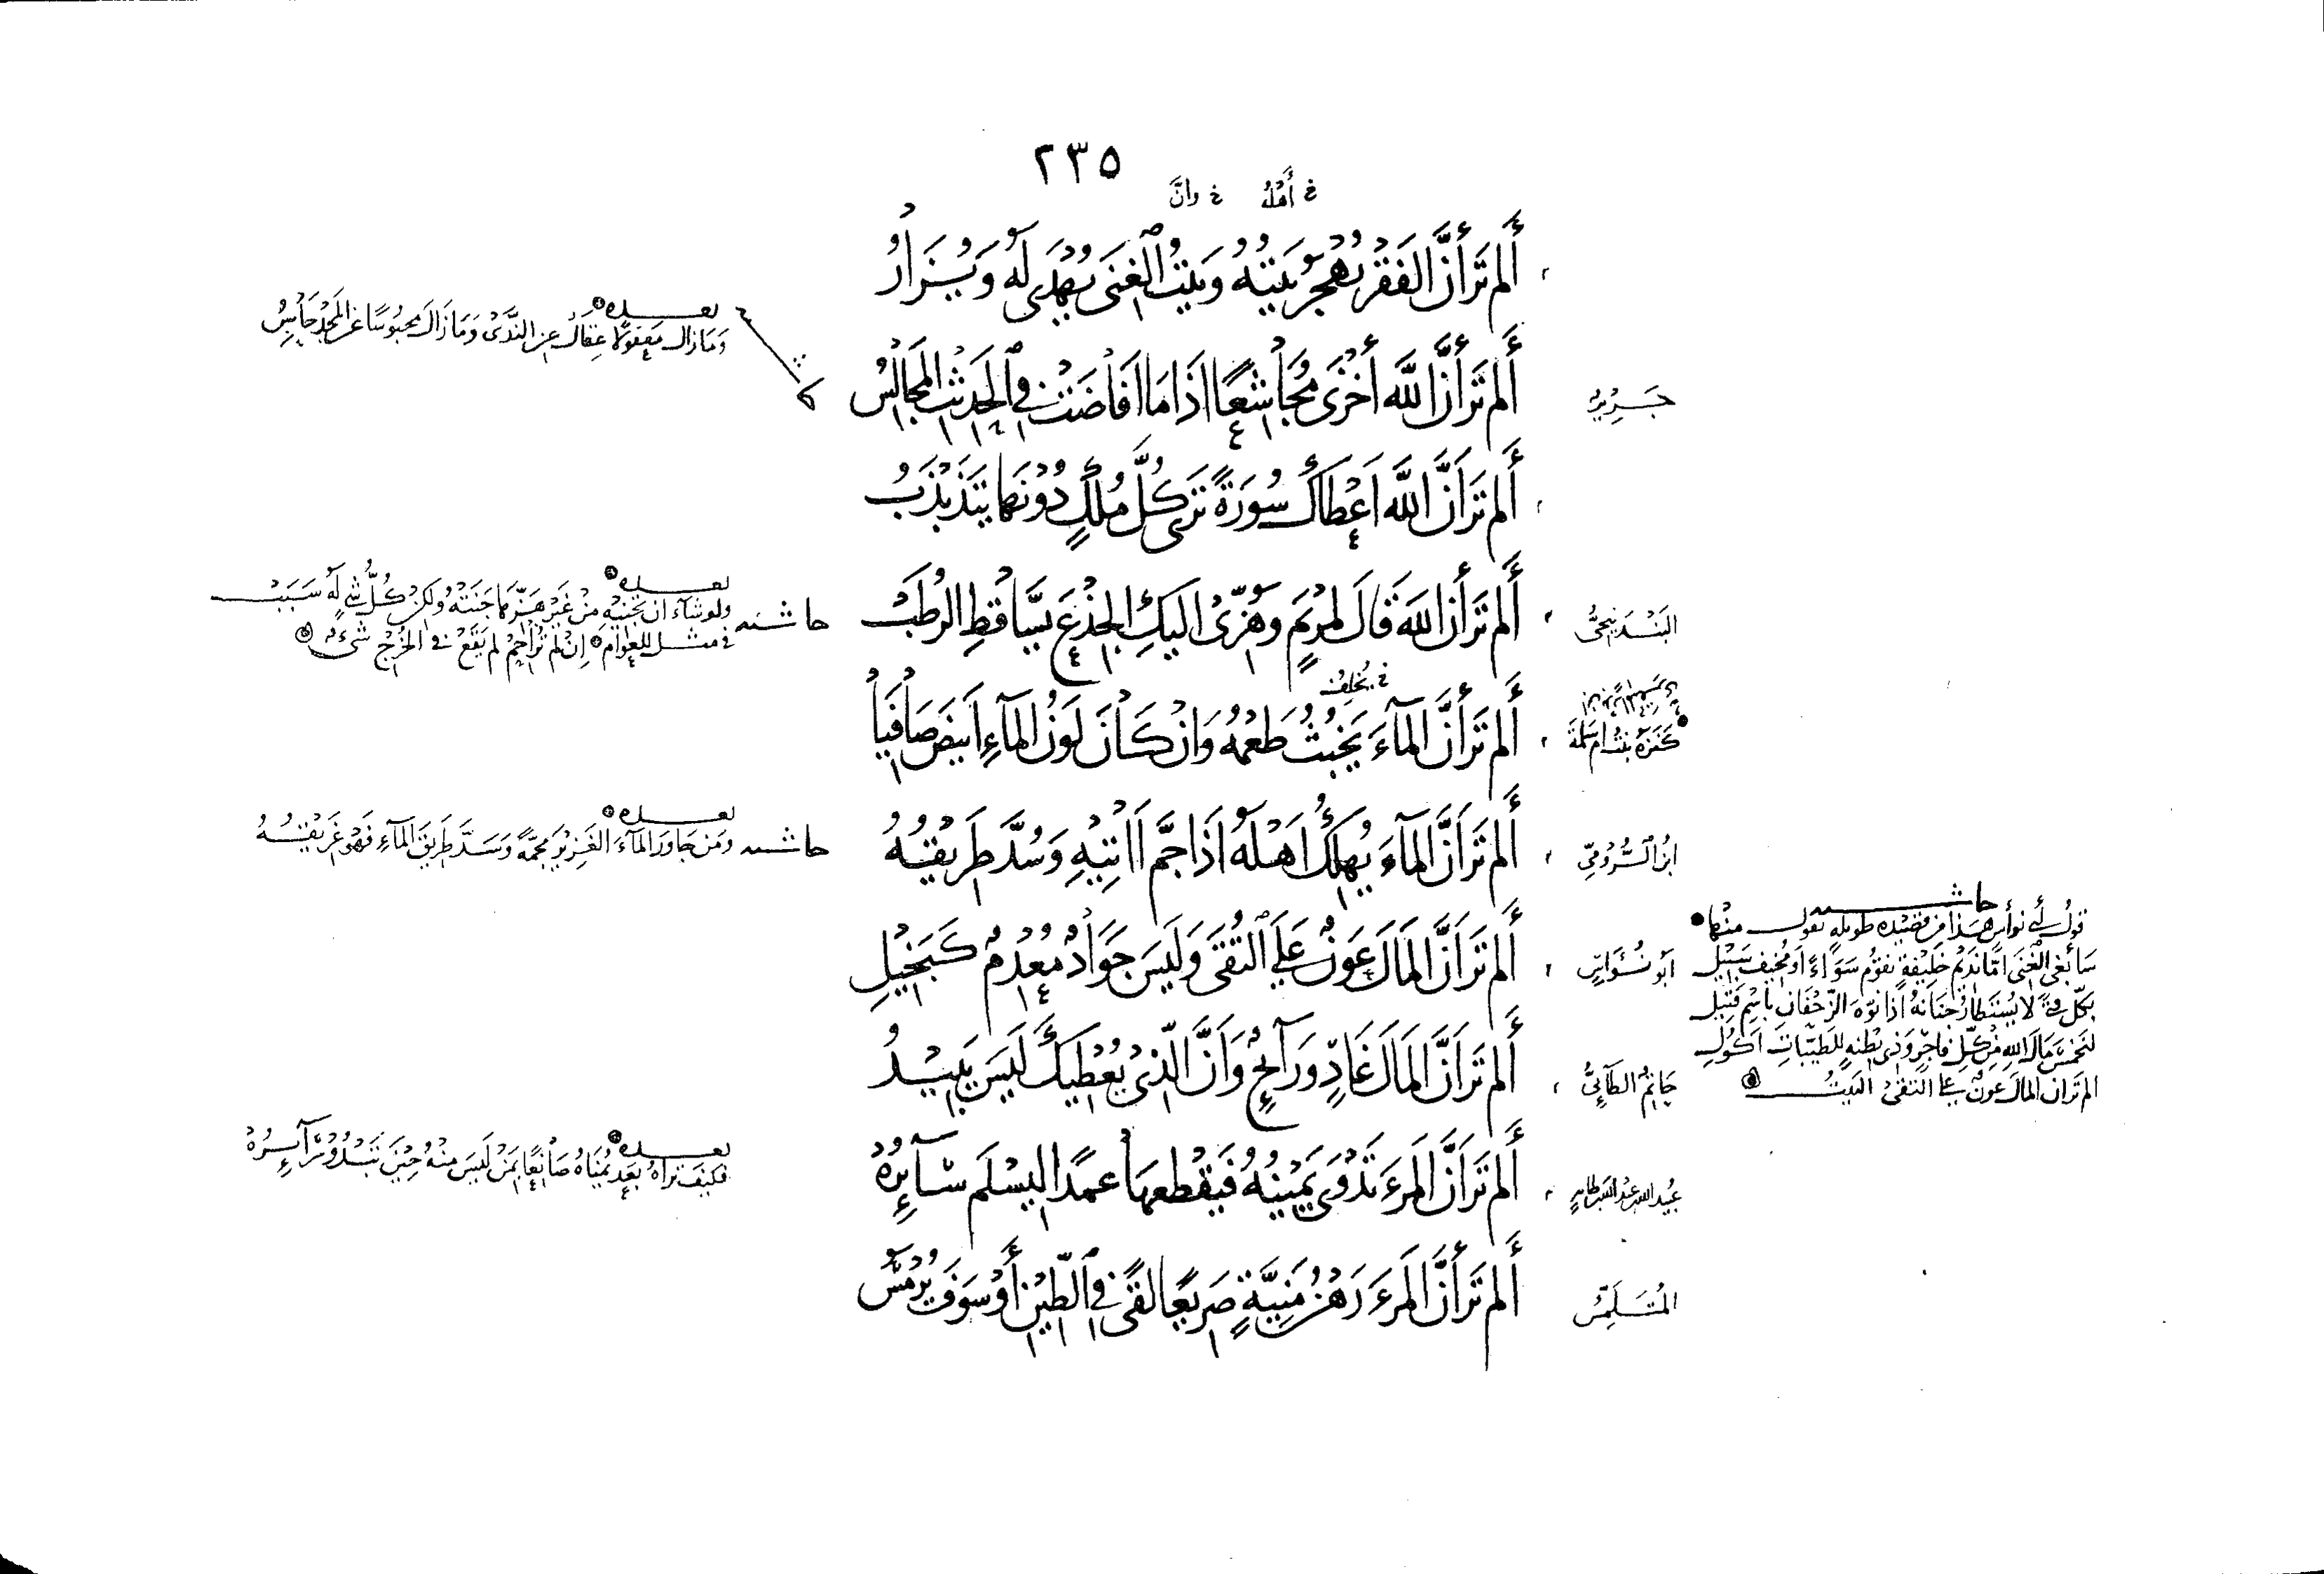 ٢٣٥
خ أَهْلُهُ خ وانَّ
أَلَم تَرَ أَنَّ الفَقْرَ يُهْجَرُ بَيْتُهُ وَبَيْتُ الْغِنَى يُهْدَى لَهُ وَيُزَارُ
بعده
وَمَا زَالَ مَعقُولًا عِقَالٌ عن النَّدَى وَمَا زَالَ مَحبُوسًا عن المَجْدِ حَابِسُ
جَرِيرٌ
أَلَم تَرَ أَنَّ اللَّهَ أَخْزَى مُجَاشِعًا اذَا مَا افَاضَتْ في الحَدِيْثِ المَجَالِسُ
أَلَم تَرَ أَنَّ اللَّهَ اَعْطَاكَ سُورَةً تَرَى كُلَّ مُلْكٍ دُوْنَهَا يَتَذَبْذَبُ
البَنْدَنِيجيُّ
أَلَم تَرَ أَنَّ اللَّهَ قَالَ لِمَرْيَمٍ وَهُزِّيْ الَيكِ الجِذْعَ يَسَّاقَطِ الرُطَبْ
حاشيه
بعده
ولو شَآءَ ان تَجْنِيْهِ مِنْ غَيْرِ هَزِّهَا جَنَتْهُ ولكنْ كُلُّ شَيءٍ لَهُ سَبَبْ
في مثل للعَوَامِّ اِنْ لم تُزَاحِمْ لم يَقَعْ في الخُرْجِ شَيءٌ
خ يَخْلُفُ
كَنزَهُ بنتُ ام شَمْلَةَ
أَلَم تَرَ أَنَّ المَآءَ يَخْبُثُ طَعْمُهُ وَانْ كَانَ لَوْنُ المَآءِ اَبْيَضَ صَافِيَا
ابنُ الرُّوْمِيِّ
أَلَم تَرَ أَنَّ المَآءَ يُهْلِكُ اَهْلَهُ اذَا جَمَّ اتِيْهِ وَسُدَّ طَرِيْقُهُ
حاشيه
بعده
وَمَن جَاوَرَ المَآءَ الغَزِيْرَ مَجَمُّهُ وَسَدَّ طَرِيقَ المَآءِ فَهْوَ غَرِيْقُهُ
ابُو نُوَاسٍ
أَلَم تَرَ أَنَّ المَالَ عَوْنٌ عَلَى التُقَى وَلَيسَ جَوَادٌ مُعْدِمٌ كَبَخِيْلِ
حاشيه
قولُ أبي نواس هَذا من قصيده طويله يقول منها
سَابْغِي الْغِنَى امَّا نَدِيْمَ خَلِيْفَةٍ يَقوُم سَوَاءً اوْ مُخِيفَ سَبِيْلِ
بكُلِّ فتًى لا يُسْتَطَارُ جَنَانُهُ اذا نَوَّهَ الزَّحْفَانِ باسْمِ قَتِيْلِ
لنَخْمِسَ مَالَ اللهِ من كُلِّ فاجِرٍ وَذِي بِطْنةٍ للطَيِّبَاتِ اَكُولِ
الم تَرَ ان المَالَ عونٌ على التقَى البَيْتُ
حَاتِمُ الطَآئِيُّ
أَلَم تَرَ أَنَّ المَالَ غَادٍ وَرَآئِحٍ وَاَنَّ الَّذِي يُعْطِيْكَ لَيسَ يَبِيْدُ
عُبَيد الله بن عبد الله بن طاهرٍ
أَلَم تَرَ أَنَّ المَرءَ تَدْوَى يَمِيْنُهُ فَيَقْطَعهَا عَمدًا ليَسْلَمَ سَآئِرُهْ
بعده
فكيفَ تَراهُ بَعدَ يُمْنَاهُ صَانِعًا بمَنْ لَيسَ مِنْهُ حِيْنَ تَبْدُو سَرَآئِرُهْ
المُتَلَمِّسُ
أَلَم تَرَ أَنَّ المَرءَ رَهْنُ مَنِيَّةٍ صَرِيْعًا لقًى فِي الطِّيْنِ أَوْ سَوفَ يُرْمَسُ